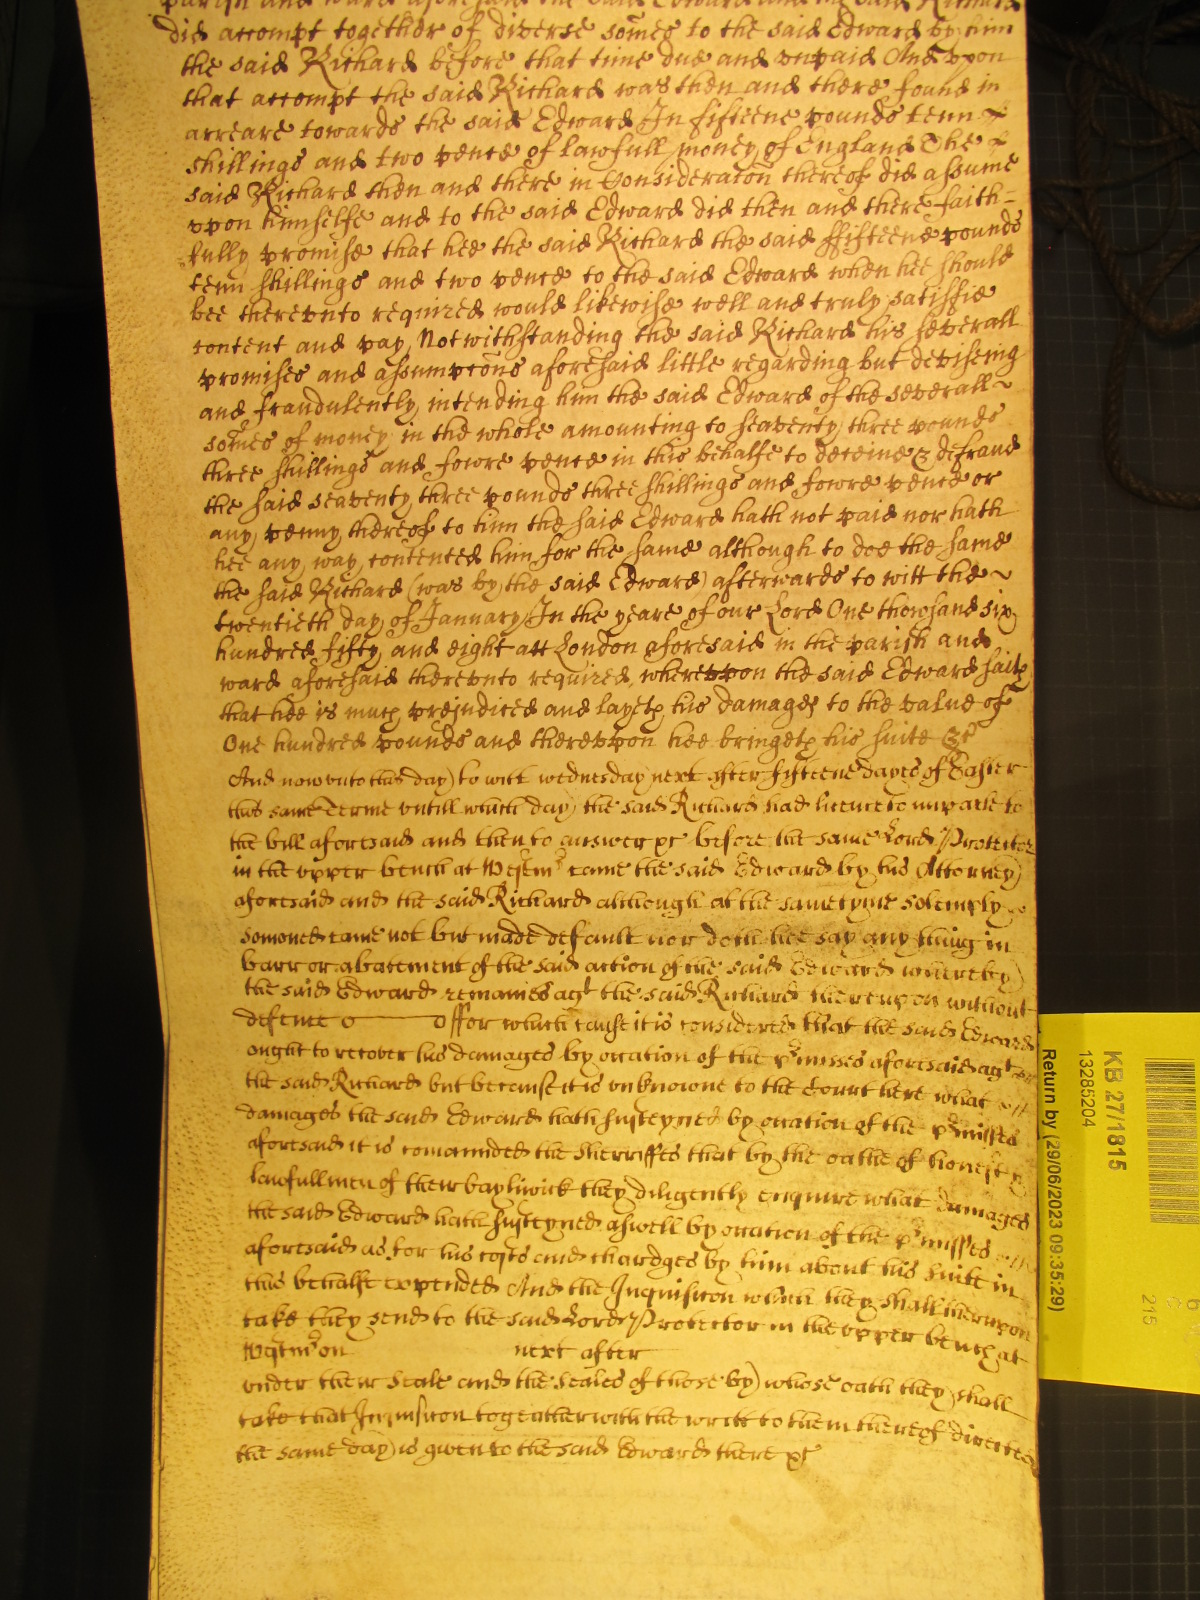 parish and ward aforesaid the said Edward and the said Richard
did accompt together of diverse somes to the said Edward by him
the said Richard before that time due and unpaid And vpon
that accompt the said Richard was then and there found in
arreare towards the said Edward In fifteene pounds tenn
shillings and two pence of lawfull money of England The
said Richard then and there in Consideracon thereof did assume
vpon himselfe and to the said Edward did then and there faith-
fully promise that hee the said Richard the said ffifteene pounds
tenn shillings and two pence to the said Edward when hee should
bee therevnto required would likewise well and truly satisfie
content and pay, Notwithstanding the said Richard his severall
promises and assumpcons aforesaid little regarding but deviseing
and fraudulently intending him the said Edward of the severall
somes of money in the whole amounting to seaventy three pounds
three shillings and fowre pence in this behalfe to deceive & defraud
the said seaventy three pounds three shillings and fowre pence or
any penny thereof to him the said Edward hath not paid nor hath
hee any way contented him for the same although to doe the same
the said Richard (was by the said Edward) afterwards to witt the
twentieth day of January In the yeare of our Lord One thowsand six
hundred fifty and eight att London aforesaid in the parish and
ward aforesaid therevnto required, wherevpon the said Edward saith
that hee is much prejudiced and layeth his damages to the value of
One hundred pounds and therevpon hee bringeth his suite &c
And now vnto this day to witt wednesday next after fifteene dayes of Easter
this same Terme vntill which day the said Richard had licence to imparle to
the bill aforesaid and then to answer &c before the same Lord Protector
in the vpper bench at Westmr came the said Edward by his Attorney
aforesaid and the said Richard although at the same tyme solemply
somoned came not but made default nor doth hee say any thing in
barr or abatement of the said action of the said Edward whereby
the said Edward remaines agt the said Richard therevpon without
defence ffor which cause it is considered that the said Edward
ought to recover his damages by occation of the pmisses aforesaid agt
the said Richard but because it is vnknowne to the Court here what
damages the said Edward hath susteyned by occation of the pmisses
aforesaid it is comannded the Sherriffes that by the oathe of honest
lawfull men of their baylywick they diligently enquire what damages
the said Edward hath susteyned aswell by occation of the pmisses
aforesaid as for his costs and chardges by him about his suite in
this behalfe expended And the Inquisicon which they shall therevpon
take they send to the said Lord Protector in the vpper bench at
Westmr on next after
vnder their seale and the seales of those by whose oath they shall
take that Inquisicon togeather with the writt to them thereof directed
the same day is given to the said Edward there &c
KB 27/1815
13285204
Return by (29/06/2023 09:35:29)
215